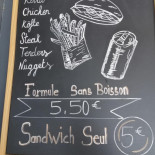 Chicken
Köfte
Steak
Tenders
Nuggets
Formule Sans Boisson
5.50€
Sandwich Seul 5€